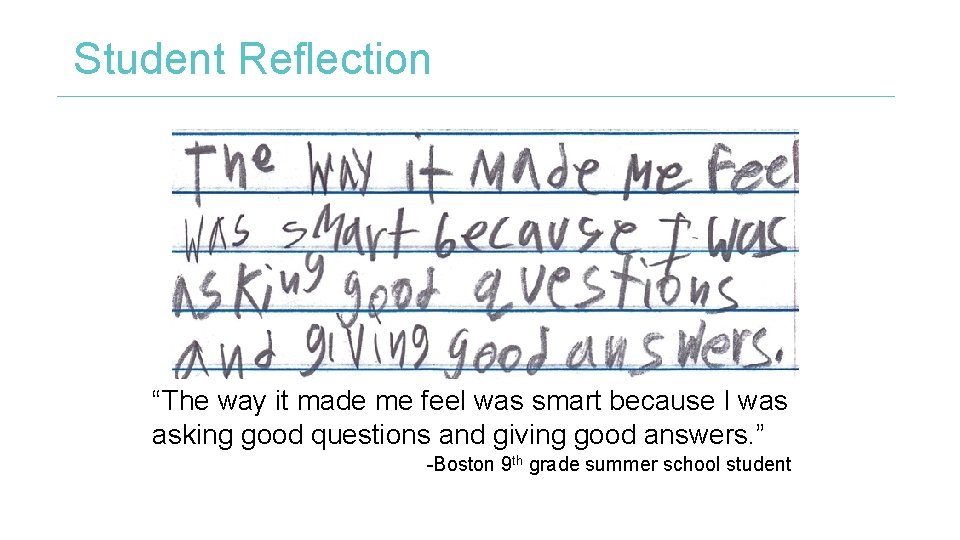 Student Reflection
The way it made me feel
was smart because I was
asking good questions
and giving good answers.
“The way it made me feel was smart because I was
asking good questions and giving good answers. ”
-Boston 9 th grade summer school student